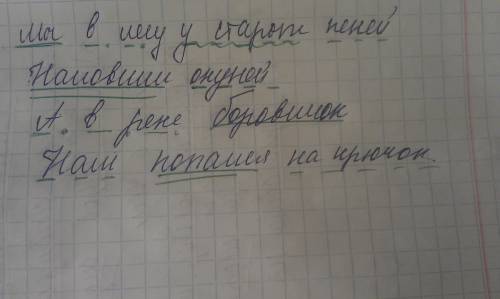 Мы в лесу у старых пеней
Наловили окуней
А в реке боровичок
Нам попался на крючок.